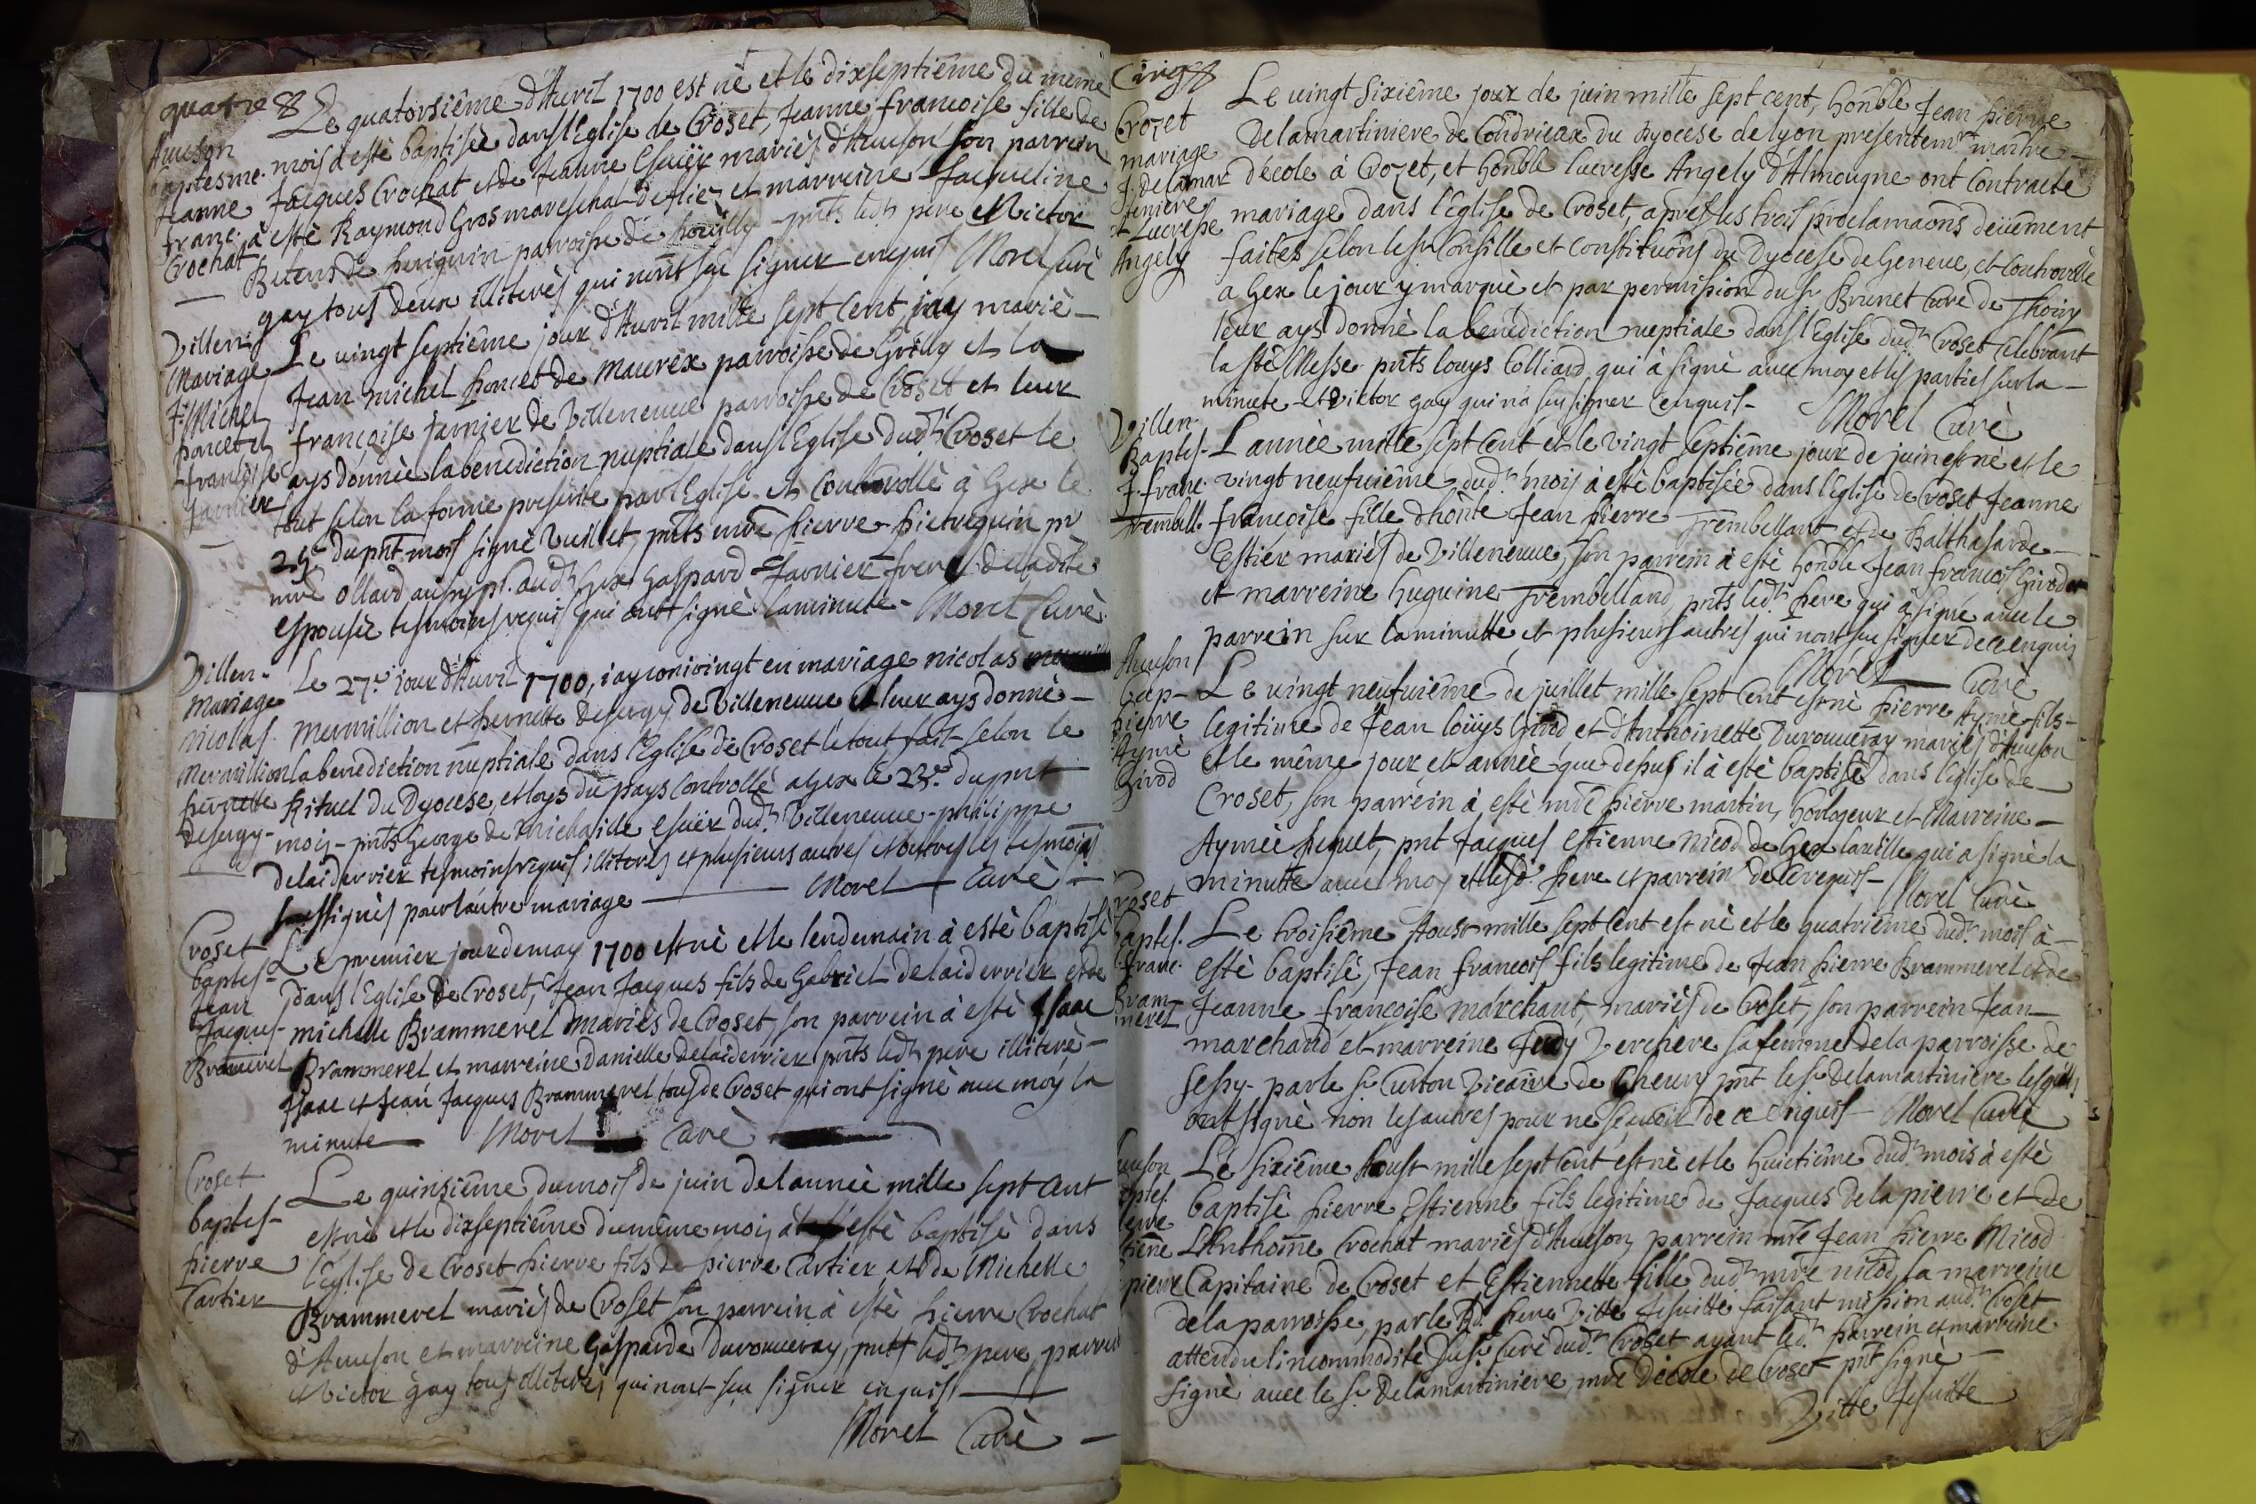 quatre
Auuson
baptesme.
Jeanne
franc.
Crochat
Le quatorsiême d'Auril 1700 est nè et le dixseptiême du meme
mois a estè baptisèe dans l'Eglise de Croset, Jeanne francoise fille de
Jacques Crochat et de Jeanne Escuÿer mariès d'Auuson son parrein
à estè Raymond Gros mareschal de flies et marreine Jacqueline
Betens de peruguin parroisse de poüilly pnts led. pere et Victor
gay tous deux illiterès qui n'ont sçu signer enquis Morel Curè
Villen.
Mariage
J. Michel
poncet et
francoise
farnier
Le uingt septiême jour d'Auril mille sept cent jay mariè
Jean michel poncet de Maurex parroisse de Grilly et la
francoise farnier de Villeneuue parroisse de Croset et leur
ays donnèe la benediction nuptiale dans l'Eglise dud. Croset le
tout selon la forme presente par l'Eglise et Controllè à Gex le
25e du pnt mois signè Vuillet, pnts mre pierre pietrequin pr
mre ollard aussy pr. aud. Gex Gaspard farnier frere de ladite
espousèe tesmoins requis qui ont signè la minute - Morel Curè
Villen-
mariage
nicolas
Mermillion
pernette
desergy-
Le 27e. jour d'Auril 1700, iay conioingt en mariage nicolas
Mermillion et pernette desergy de Villeneuue et leur ays donnè
la benediction nuptiale dans l'Eglise de Croset le tout fait selon le
Rituel du Dyocese, et loys du pays Controllè a Gex le 23e. du pnt
mois - pnts George de Michaille escuÿer dud. Villeneuue - philippe
delaiderrier tesmoins requis illiterès et plusieurs autres et outre les tesmoins
soussignès pour l'autre mariage Morel Curè
Croset
baptes-
Jean
Jacques
Bramerel
Le premier jour de may 1700 est nè et le lendemain à estè baptisè
dans l'Eglise de Croset, Jean Jacques fils de Gabriel delaiderrier et de
michelle Brammerel mariès de Croset son parrein à estè Isaac
Brammerel et marreine Danielle delaiderrier pnts led. pere illiterè
Isaac et Jean Jacques Brammerel tous de Croset qui ont signè auec moy la
minute Morel Curè
Croset
baptes-
pierre
Cartier
Le quinsiême du mois de juin de lannèe mille sept cent
est nè et le dixseptiême du même mois à estè baptisè dans
l'Eglise de Croset pierre fils de pierre Cartier et de Michelle
Brammerel mariès de Croset son parrein à estè pierre Crochat
d'Auuson et marreine Gasparde Duroueray, pnts led. pere, parrein
et Victor gay tous illiterès qui n'ont sçu signer enquis
Morel Curè
Cinq
Crozet
mariage
J. delamar
teniere
et Lucresse
Angely
Le uingt sixiême jour de juin mille sept cent, honble Jean pierre
Delamartiniere de Condrieux du dyocese de lyon presentemt maître
d'école à Crozet, et honble lucresse Angely d'Almougne ont Contractè
mariage dans l'Eglise de Croset, apres les trois proclamaons deüement
faites selon le st Consille et constituons du Dyocese de Geneue, et Controllè
a Gex le jour y marquè et par permission du sr Brunet Curè de Thoiry
leur ays donnè la benediction nuptiale dans l'Eglise dud. Croset celebrant
la ste Messe pnts louys Colliard qui à signè auec moy et les parties sur la
minute et victor gay qui n'a sçu signer enquis Morel Curè
Villen
Baptes-
J. franc.
Trembell.
L'annèe mille sept cent et le vingt septiême jour de juin est nè et le
vingt neufuiême dud. mois à estè baptisèe dans l'Eglise de Croset Jeanne
francoise fille d'honte Jean pierre Trembellant et de Balthasarde
Estier mariès de Villeneuue, son parrein à estè honble Jean francois Girod
et marreine huguine Trembelland, pnts led. pere qui à signè auec le
parrein sur la minutte, et plusieurs autres qui n'ont sçu signer de ce enquis
Morel Curè
Auuson
bap-
pierre
Aymè
Girod
Le uingt neufuiême de juillet mille sept cent est nè pierre Aymè fils
legitime de Jean loüys Girod et d'Anthoinette Duroueray mariès d'Auuson
et le même jour et annèe que dessus il à estè baptisè dans l'Eglise de
Croset, son parrein à estè mre pierre martin, horlogeur et Marreine
Aymèe pequet, pnt Jacques estienne Nicod de Gex la uille qui a signè la
minutte auec moy et lesd. pere et parrein de ce requis Morel Curè
Croset
baptes.
J. franc.
Bram
merel
Le troisiême Aoust mille sept cent est nè et le quatriême dud. mois à
estè baptisè, Jean francois fils legitime de Jean pierre Brammerel et de
Jeanne francoise Marchant, mariès de Croset, son parrein Jean
marchand et marreine Judy Verchere sa femme de la parroisse de
Sessy - par le sr Curton Vicaire de Cheury pnt le sr delamartiniere lesqls
ont signè non les autres pour ne sçauoir de ce enquis Morel Curè
Auuson
baptes.
pierre
estiene
de la pierre
Le sixiême Aoust mille sept cent est nè et le huictiême dud. mois à estè
baptisè pierre Estienne fils legitime de Jacques de la pierre et de
L'Anthoine Crochat mariès d'Auuson, parrein mre Jean pierre Nicod
Capitaine de Croset et Estiennette fille dud. mre nicod sa marreine
de la parroisse, par le Rd. pere Vitte Jesuitte faisant mission aud. Croset
attendu l'incommodité du sr Curè dud. Croset ayant led. parrein et marreine
signè auec le sr Delamartiniere, mre d'ecole de Croset pnt signè
Vitte Jesuitte